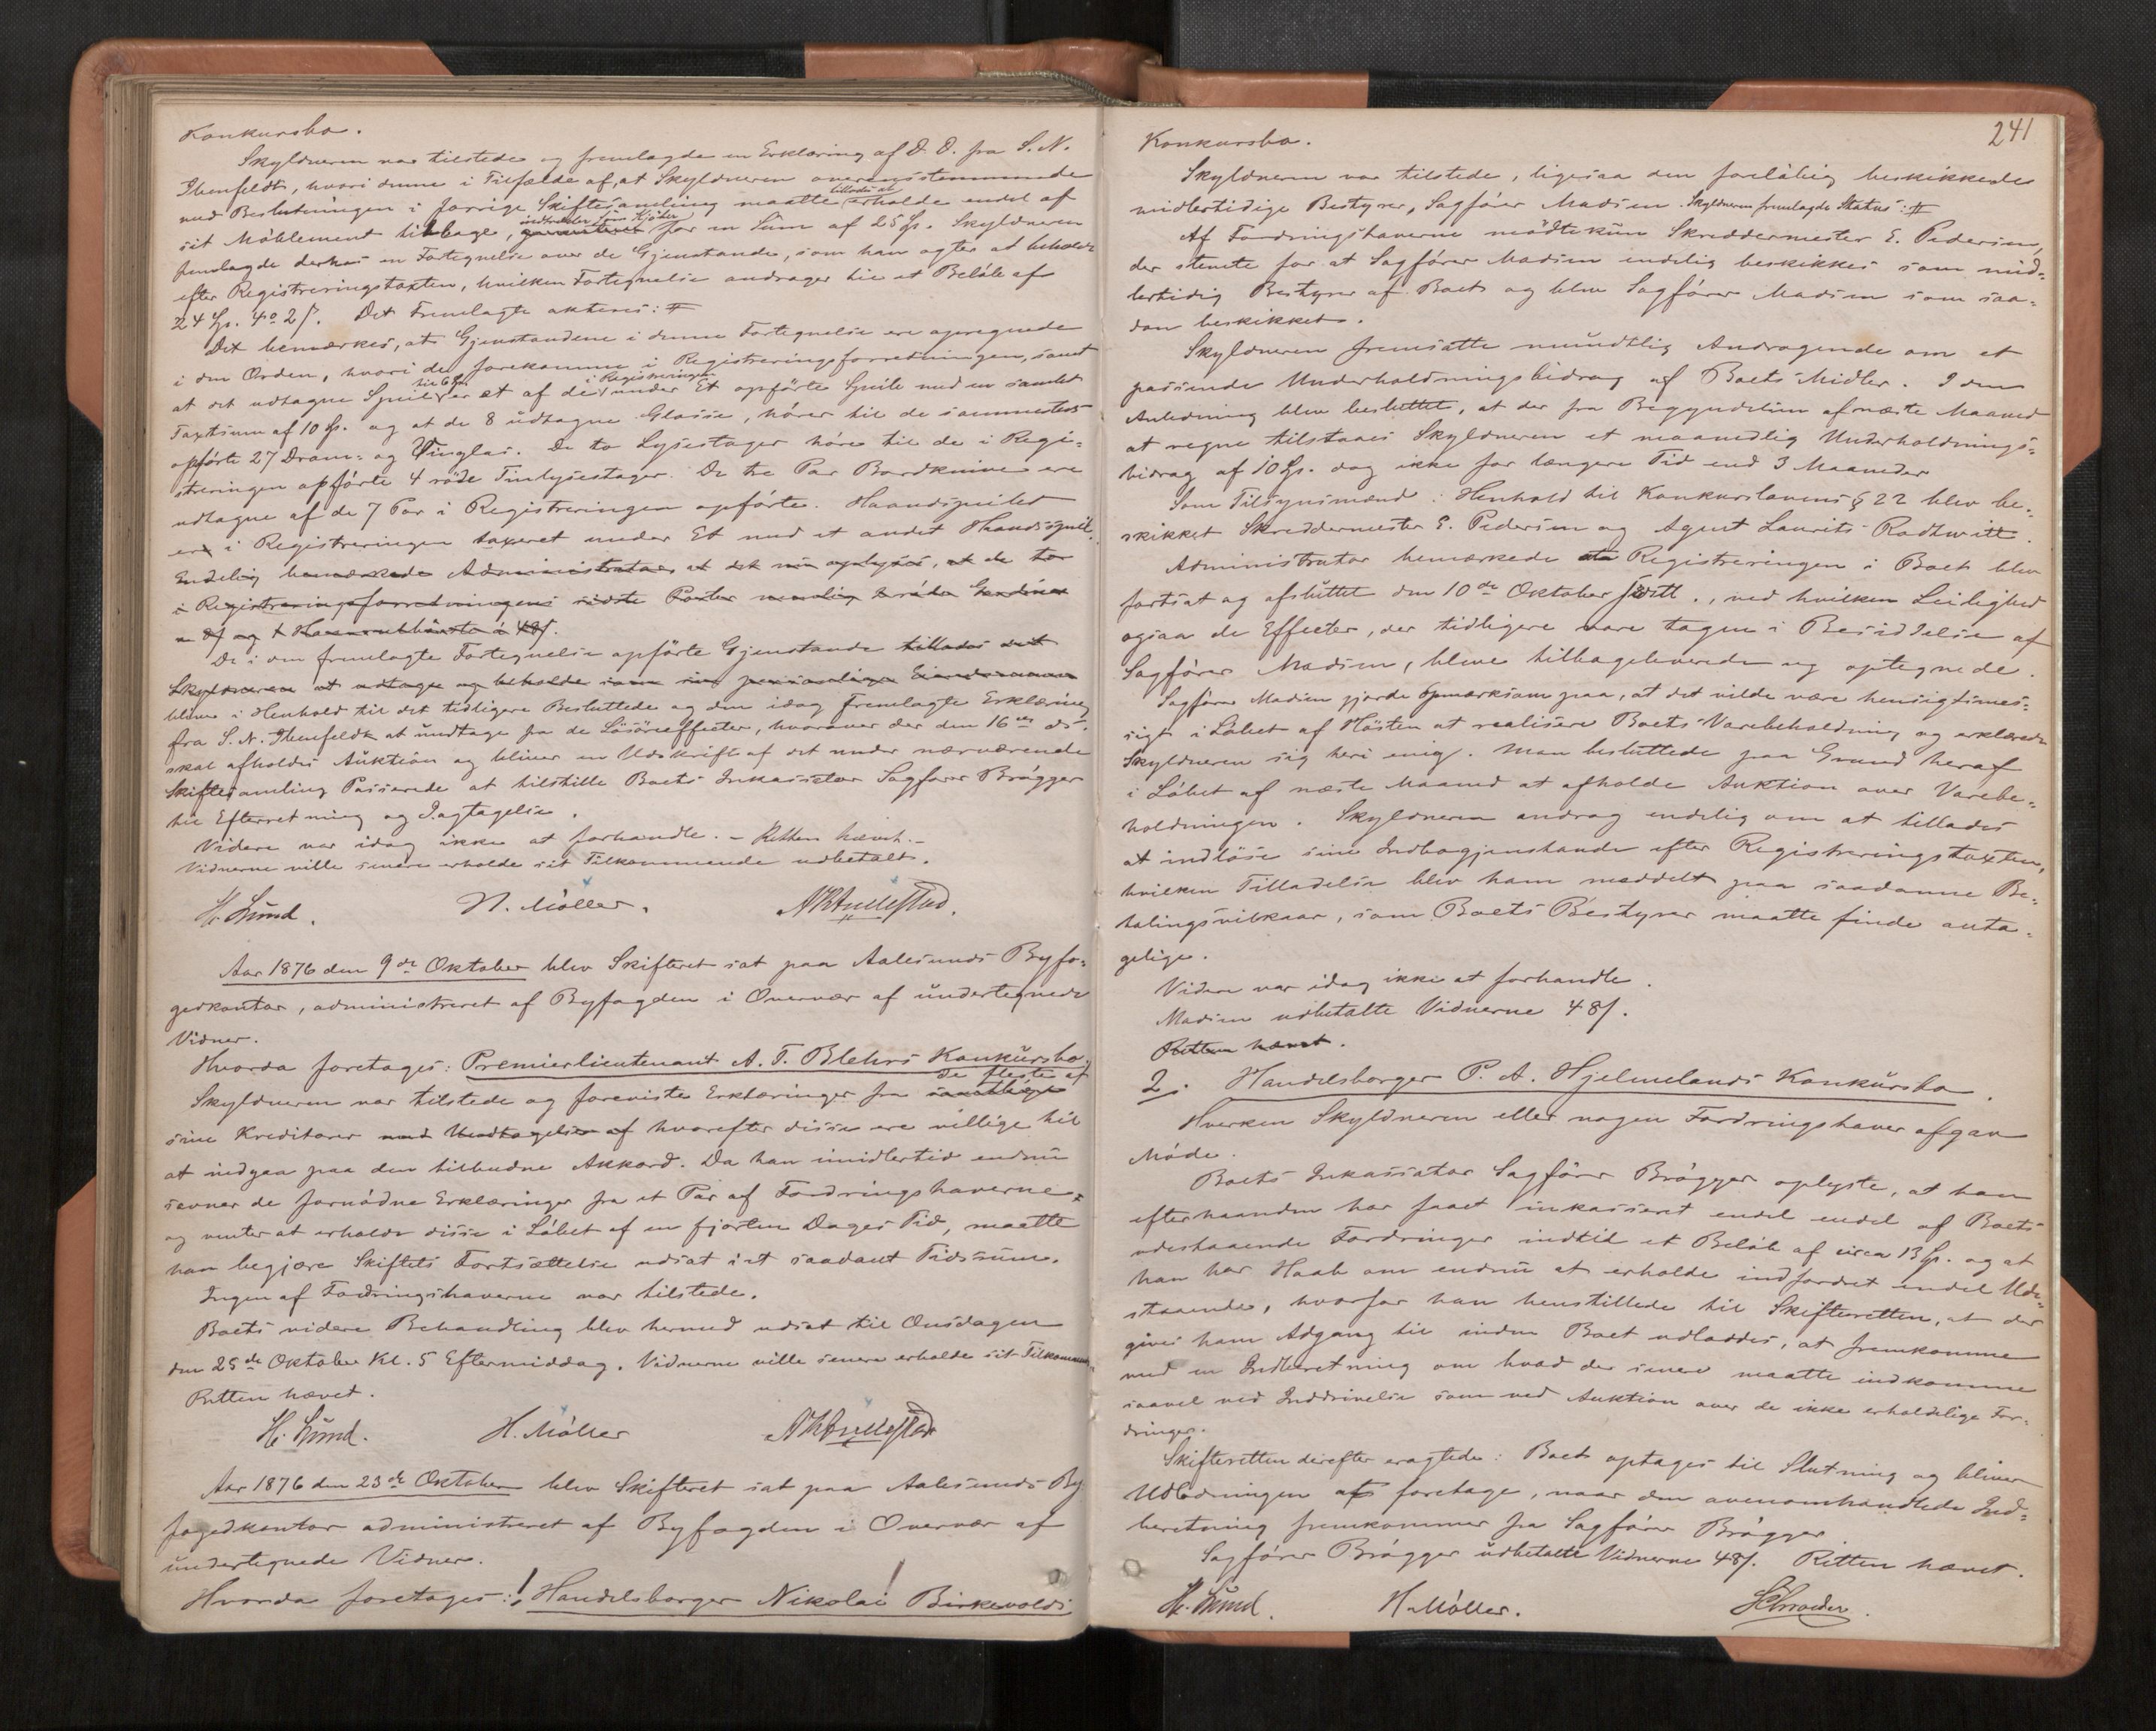 Konkursbo.
Skyldneren var tilstede og fremlagde en Erklæring af D. D. fra S. N.
Ibenfeldt, hvori denne i Tilfælde af, at Skyldneren overensstemmende
med Beslutningen i forrige Skiftesamling maatte tillades at erholde endel af
sit Möblement tilbage, indtræder som Kjöber for en Sum af 25 Sp. Skyldneren
fremlagde derhos en Fortegnelse over de Gjenstande, som han agter at beholde
efter Registreringstaxten, hvilken Fortegnelse andrager til et Belöb af
24 Sp. 4 o 2 s. Det Fremlagte akteres: #
Det bemærkes, at Gjenstandene i denne Fortegnelse ere opregnede
i den Orden, hvori de forekomme i Registreringsforretningen, samt
at det udtagne Speil til 6 Sp. er et af de i Registreringen under Et opförte Speile med en samlet
Taxtsum af 10 Sp. og at de 8 udtagne Glasse, hörer til de sammesteds
opförte 27 Dram- og Vinglas. De to Lysestager höre til de i Regi-
streringen opförte 4 röde Tinlysestager. De tre Par Bordknive ere
udtagne af de 7 Par i Registreringen opförte. Haandspeilet
er i Registreringen taxeret under Et med et andet Haandspeil.
Endelig bemærkede Administrator at det nu oplystes, at de to
i Registreringsforretningens sidste Poster nemlig
De i den fremlagte Fortegnelse opförte Gjenstande tillades det
Skyldneren at udtage og beholde som sin personlige Eiendom
blive i Henhold til det tidligere Besluttede og den idag fremlagte Erklæring
fra S. N. Ibenfeldt at undtage fra de Lösöreffecter, hvorover der den 16de ds.
skal afholdes Auktion og bliver en Udskrift af det under nærværende
Skiftesamling Passerede at tilstille Boets Inkassator Sagförer Brögger
til Efterretning og Iagttagelse.
Videre var idag ikke at forhandle. - Retten hævet. -
Vidnerne ville senere erholde sit Tilkommende udbetalt.
H. Lund. H. Möller.
Aar 1876 den 9de Oktober blev Skifteret sat paa Aalesunds Byfo-
gedkontor, administreret af Byfogden i Overvær af undertegnede
Vidner.
Hvorda foretages: Premierlieutenant A. T. Blehrs Konkursbo.
Skyldneren var tilstede og foreviste Erklæringer fra de fleste af
sine Kreditorer med Undtagelse af hvorefter disse ere villige til
at indgaa paa den tilbudne Akkord. Da han imidlertid endnu
savner de fornödne Erklæringer fra et Par af Fordringshaverne
og venter at erholde disse i Löbet af en fjorten Dages Tid, maatte
han begjære Skiftets Fortsættelse udsat i et saadant Tidsrum.
Ingen af Fordringshaverne var tilstede.
Boets videre Behandling blev hermed udsat til Onsdagen
den 25de Oktober Kl. 5 Eftermiddag. Vidnerne ville senere erholde sit Tilkommende
Retten hævet.
H. Lund. H. Möller
Aar 1876 den 23de Oktober blev Skifteret sat paa Aalesunds By
fogedkontor administreret af Byfogden i Overvær af
undertegnede Vidner.
Hvorda foretages: 1 Handelsborger Nikolai Birkevolds
241
Konkursbo.
Skyldneren var tilstede, ligesaa den foreløbig beskikkede
midlertidige Bestyrer, Sagförer Madsen. Skyldneren fremlagde Status: #
Af Fordringshaverne mödte kun Skreddermester E. Pedersen,
der stemte for at Sagförer Madsen endelig beskikkes som mid-
lertidig Bestyrer af Boet og blev Sagförer Madsen som saa-
dan beskikket.
Skyldneren fremsatte mundtlig Andragende om et
passende Underholdningsbidrag af Boets Midler. I den
Anledning blev besluttet, at der fra Begyndelsen af næste Maaned
at regne tilstaaes Skyldneren et maanedlig Underholdnings-
bidrag af 10 Sp. dog ikke for længere Tid end 3 Maaneder
Som Tilsynsmænd i Henhold til Konkurslovens § 22 blev be-
skikket Skreddermester E. Pedersen og Agent Laurits Rodtwitt.
Administrator bemærkede at Registreringen i Boet blev
fortsat og afsluttet den 10de Oktober sidstl., ved hvilken Leilighed
ogsaa de Effecter, der tidligere vare tagen i Besiddelse af
Sagförer Madsen, bleve tilbageleverede og optegnede.
Sagförer Madsen gjorde opmærksom paa, at det vilde være hensigtsmes-
sigt i Löbet af Hösten at realisere Boets Varebeholdning og erklærede
Skyldneren sig heri enig. Man besluttede paa Grund heraf
i Löbet af næste Maaned at afholde Auktion over Varebe-
holdningen. Skyldneren androg endelig om at tillades
at indlöse sine Indbogjenstande efter Registreringstaxten,
hvilken Tilladelse blev ham meddelt paa saadanne Be-
talingsvilkaar, som Boets Bestyrer maatte finde anta-
gelige.
Videre var idag ikke at forhandle.
Madsen udbetalte Vidnerne 48 s.
Retten hævet.
2. Handelsborger P. A. Hjelmelands Konkursbo.
Hverken Skyldneren eller nogen Fordringshaver afgav
Möde.
Boets Inkassator Sagförer Brögger oplyste, at han
efterhaanden har faaet inkasseret endel endel af Boets
udestaaende Fordringer indtil et Belöb af circa 13 Sp. og at
han har Haab om endnu at erholde indfordret endel Ude-
staaende, hvorfor han henstillede til Skifteretten, at der
gives ham Adgang til inden Boet udloddes, at fremkomme
med en Indberetning om hvad der senere maatte indkomme
saavel ved Inddrivelse som ved Auktion over de ikke erholdelige For-
dringer.
Skifteretten derefter eragtede: Boet optages til Slutning og bliver
Udlodningen at foretage, naar den ovenomhandlede Ind-
beretning fremkommer fra Sagförer Brögger
Sagförer Brögger udbetalte Vidnerne 48 s. Retten hævet.
H. Lund. H. Möller. Schroeder.